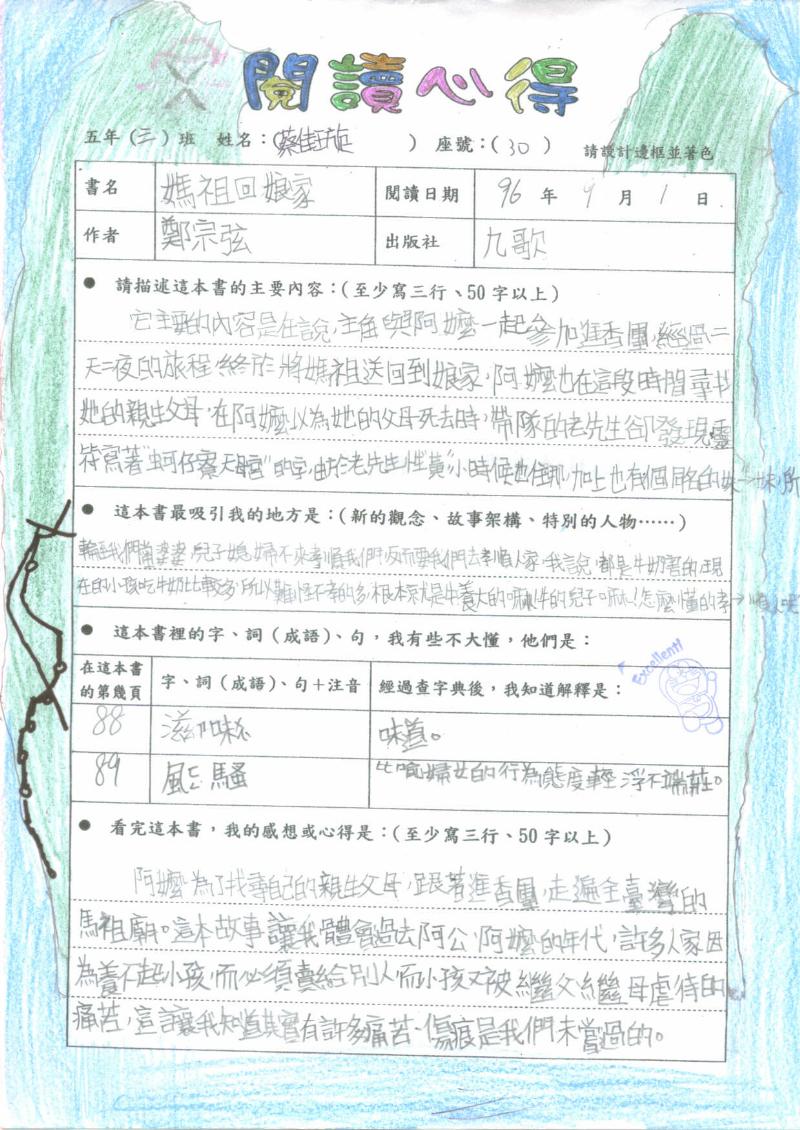 閱讀心得
五年(三)班 姓名：(蔡佳玳) 座號：(30) 請設計邊框並著色
書名 媽祖回娘家 閱讀日期 96年9月1日
作者 鄭宗弦 出版社 九歌
● 請描述這本書的主要內容：(至少寫三行、50字以上)
它主要的內容是在說，主角與阿嬤一起參加進香團，經過二
天二夜的旅程終於將媽祖送回到娘家，阿嬤也在這段時間尋找
她的親生父母，在阿嬤以為她的父母死去時，帶隊的老先生卻發現靈
符寫著"蚵仔寮天母宮"的字，由於老先生性"黃"小時候也住那，加上也有個同名的妹→妹，所
● 這本書最吸引我的地方是：(新的觀念、故事架構、特別的人物……)
輪到我們當婆婆，兒子媳婦不來孝順我們，反而要我們去孝順人家，我說，都是牛奶害的，現
在的小孩吃牛奶比較多，所以難怪不孝的多，根本就是牛養大的嘛，牛的兒子嘛！怎麼懂的孝→順人呢
● 這本書裡的字、詞(成語)、句，我有些不大懂，他們是：
在這本書的第幾頁 字、詞(成語)、句＋注音 經過查字典後，我知道解釋是：
Excellent!
88 滋味 味道。
89 風騷 比喻婦女的行為態度輕浮不端莊。
● 看完這本書，我的感想或心得是：(至少寫三行、50字以上)
阿嬤為了找尋自己的親生父母，跟著進香團，走遍全臺灣的
馬祖廟。這本故事讓我體會過去阿公、阿嬤的年代，許多人家因
為養不起小孩，而必須賣給別人，而小孩又被繼父繼母虐待的
痛苦，這讓我知道其實有許多痛苦、傷痕是我們未嘗過的。